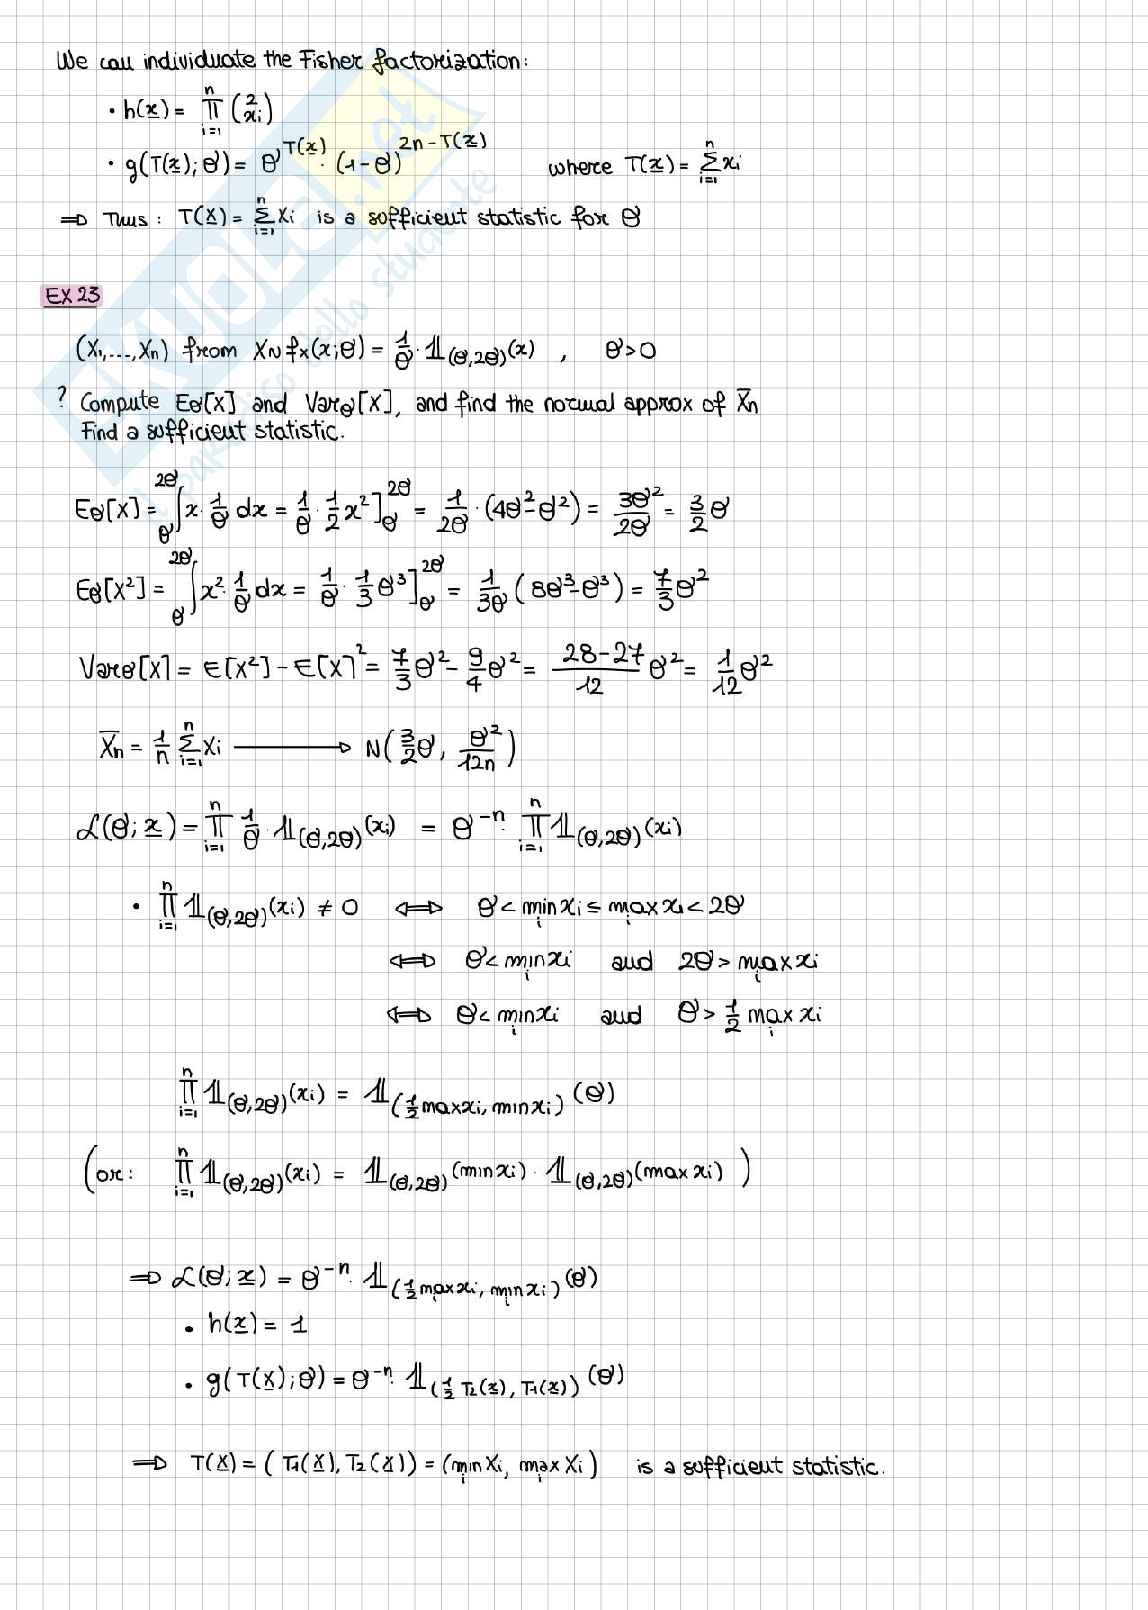 We can individuate the Fisher factorization:
• h(x) = ∏_{i=1}^{n} (2 xi)
• g(T(x); θ) = θ^{T(x)} · (1-θ)^{2n-T(x)} where T(x) = Σ_{i=1}^{n} xi
⇒ Thus: T(X) = Σ_{i=1}^{n} Xi is a sofficient statistic for θ
EX 23
(X1,...,Xn) from X∼fx(x;θ) = 1/θ · 𝟙_(θ,2θ)(x) , θ>0
? Compute Eθ[X] and Varθ[X], and find the normal approx of X̄n
Find a sufficient statistic.
Eθ[X] = ∫_θ^{2θ} x · 1/θ dx = 1/θ · 1/2 x²]_θ^{2θ} = 1/2θ · (4θ²-θ²) = 3θ²/2θ = 3/2 θ
Eθ[X²] = ∫_θ^{2θ} x² · 1/θ dx = 1/θ · 1/3 θ³]_θ^{2θ} = 1/3θ (8θ³-θ³) = 7/3 θ²
Varθ[X] = E[X²] - E[X]² = 7/3 θ² - 9/4 θ² = 28-27/12 θ² = 1/12 θ²
X̄n = 1/n Σ_{i=1}^{n} Xi ⟶ N(3/2 θ, θ²/12n)
ℒ(θ; x) = ∏_{i=1}^{n} 1/θ · 𝟙_(θ,2θ)(xi) = θ^{-n} · ∏_{i=1}^{n} 𝟙_(θ,2θ)(xi)
• ∏_{i=1}^{n} 𝟙_(θ,2θ)(xi) ≠ 0 ⟺ θ < min_i xi ≤ max_i xi < 2θ
⟺ θ < min_i xi and 2θ > max_i xi
⟺ θ < min_i xi and θ > 1/2 max_i xi
∏_{i=1}^{n} 𝟙_(θ,2θ)(xi) = 𝟙_(1/2 max xi, min xi)(θ)
(or: ∏_{i=1}^{n} 𝟙_(θ,2θ)(xi) = 𝟙_(θ,2θ)(min xi) · 𝟙_(θ,2θ)(max xi))
⇒ ℒ(θ; x) = θ^{-n} · 𝟙_(1/2 max_i xi, min_i xi)(θ)
• h(x) = 1
• g(T(x); θ) = θ^{-n} · 𝟙_(1/2 T2(x), T1(x))(θ)
⇒ T(X) = (T1(X), T2(X)) = (min_i Xi, max_i Xi) is a sufficient statistic.
SKUOLA.net
il paradiso dello studente